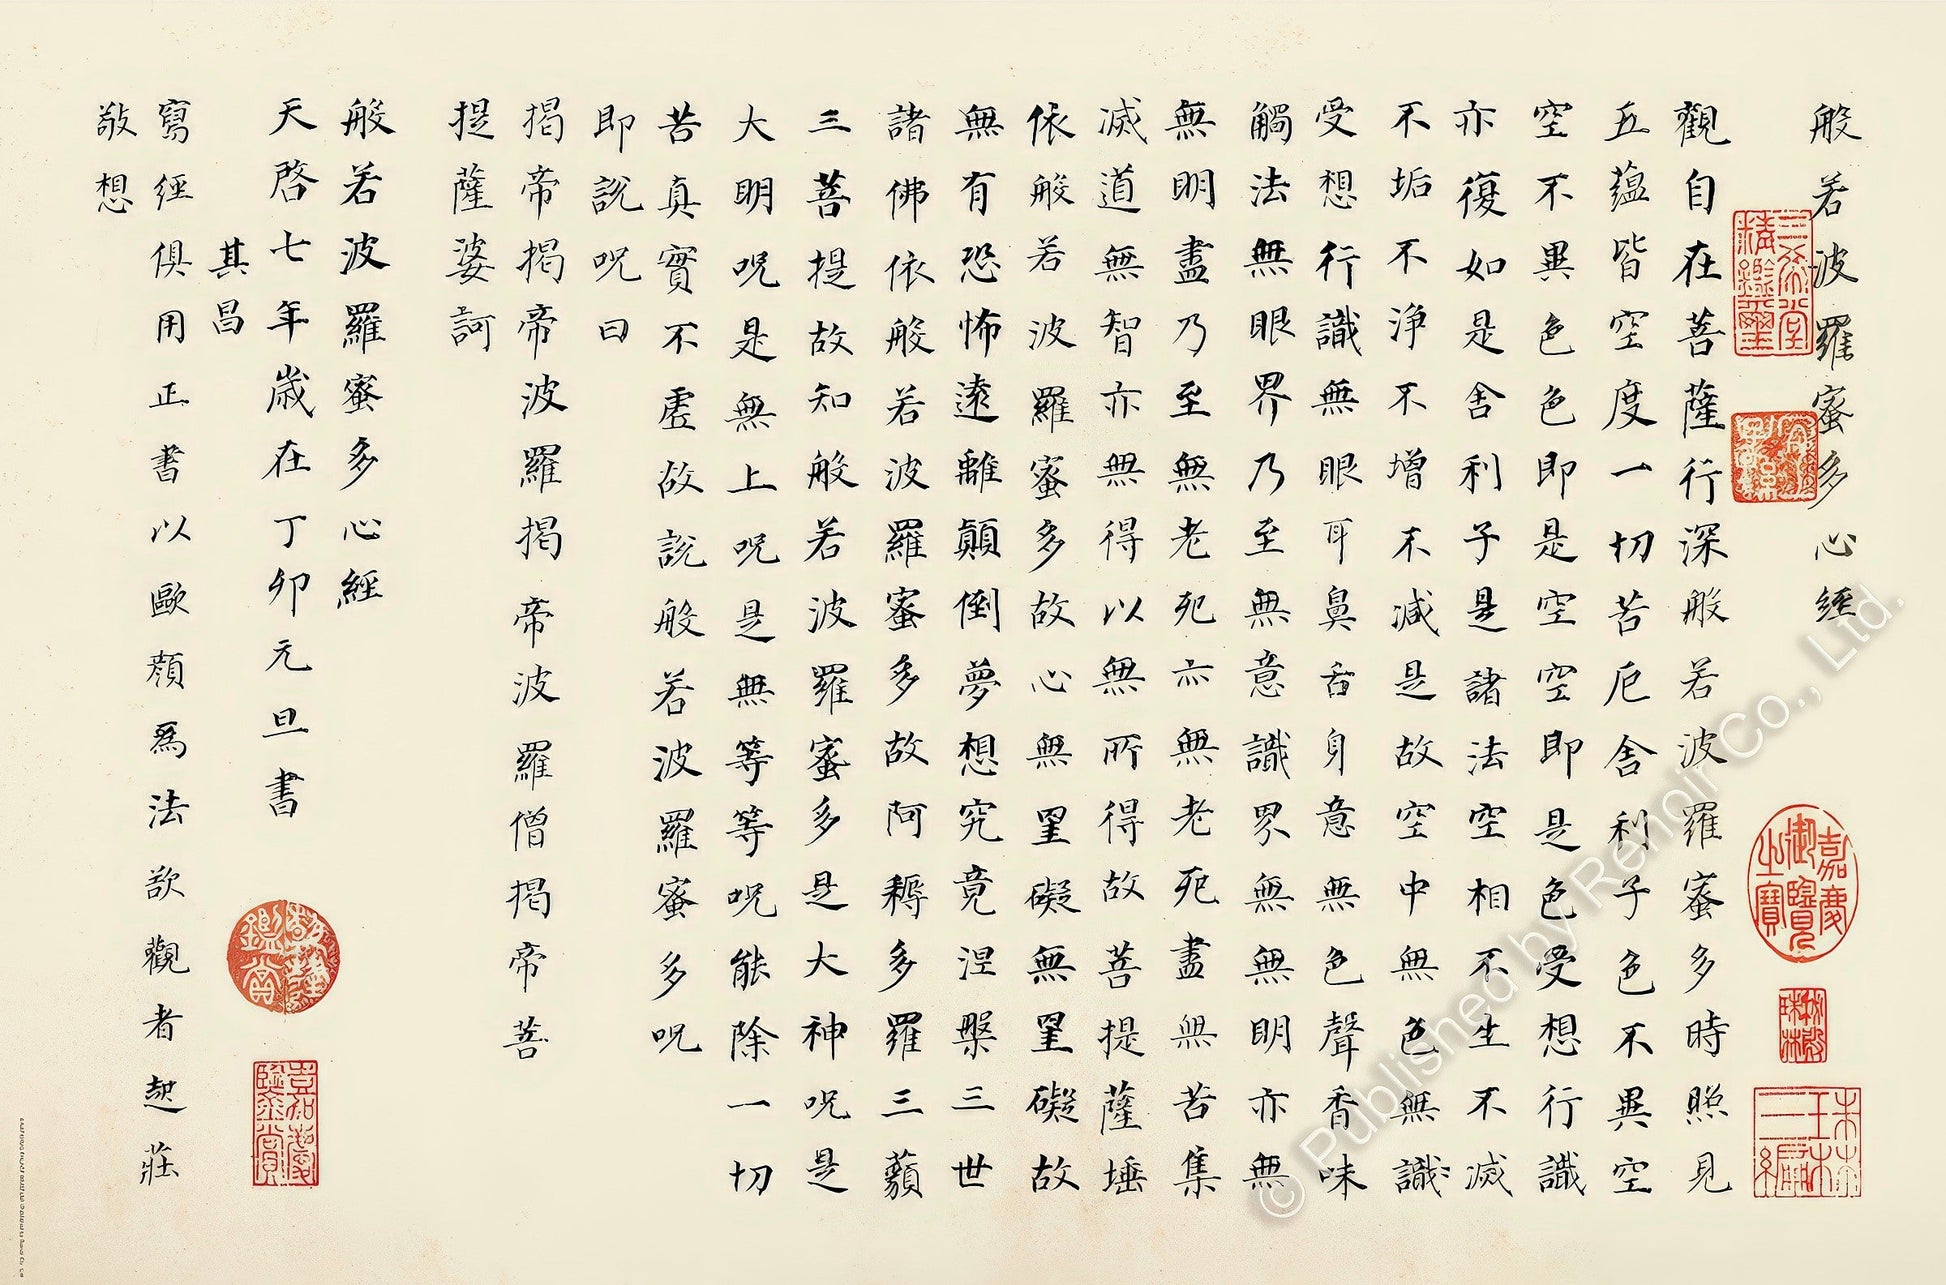 般若波羅蜜多心經
觀自在菩薩行深般若波羅蜜多時照見
五蘊皆空度一切苦厄舍利子色不異空
空不異色色即是空空即是色受想行識
亦復如是舍利子是諸法空相不生不滅
不垢不淨不增不減是故空中無色無識
受想行識無眼耳鼻舌身意無色聲香味
觸法無眼界乃至無意識界無無明亦無
無明盡乃至無老死亦無老死盡無苦集
滅道無智亦無得以無所得故菩提薩埵
依般若波羅蜜多故心無罣礙無罣礙故
無有恐怖遠離顛倒夢想究竟涅槃三世
諸佛依般若波羅蜜多故阿耨多羅三藐
三菩提故知般若波羅蜜多是大神呪是
大明呪是無上呪是無等等呪能除一切
苦真實不虛故說般若波羅蜜多呪
即說呪曰
揭帝揭帝波羅揭帝波羅僧揭帝菩
提薩婆訶
般若波羅蜜多心經
天啓七年歲在丁卯元旦書
其昌
寫經俱用正書以歐顏為法欲觀者起莊
敬想
三希堂精鑑璽
嘉慶御覽之寶
嘉慶鑑賞
© Published by Renoir Co., Ltd.